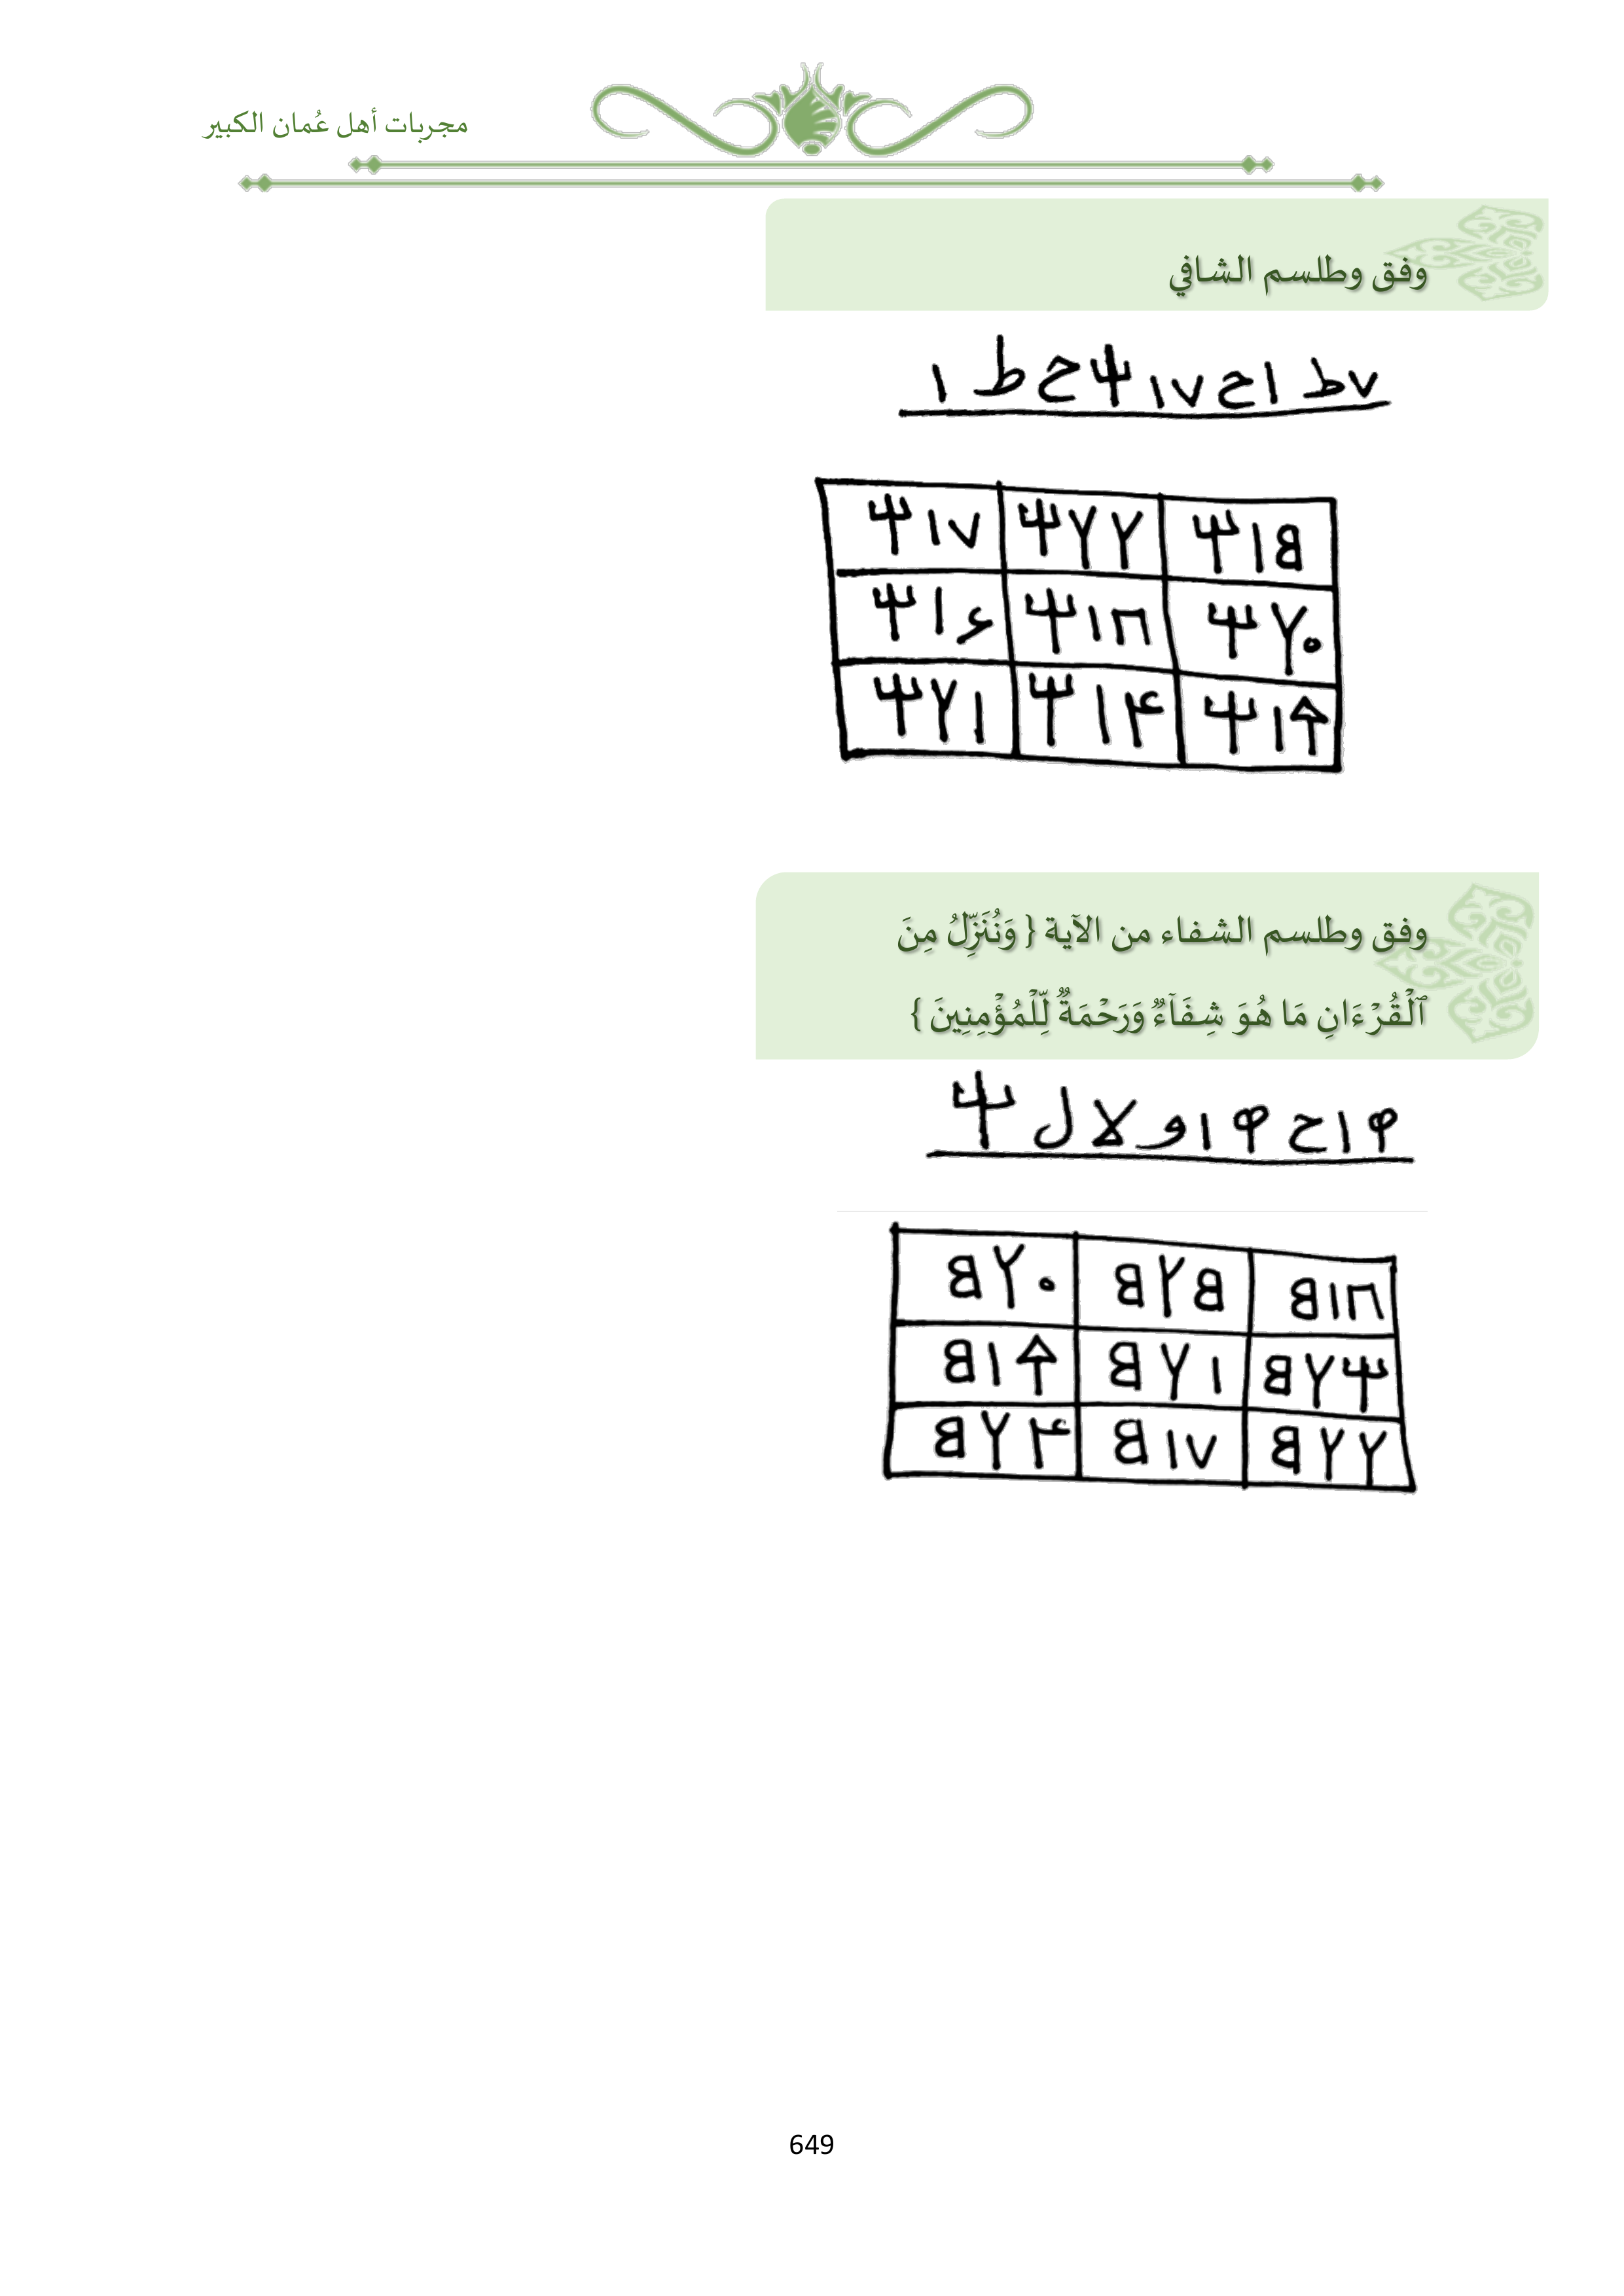 مجربات أهل عُمان الكبير
وفق وطلسم الشافي
٧ط اح ١٧ ٣ ح ط ا
٣١٧ ٣٢٢ ٣١٥
٣١٦ ٣١٨ ٣٢٠
٣٢١ ٣١٤ ٣١٩
وفق وطلسم الشفاء من الآية { وَنُنَزِّلُ مِنَ
ٱلْقُرْءَانِ مَا هُوَ شِفَآءٌ وَرَحْمَةٌ لِّلْمُؤْمِنِينَ }
ا ح ا و لا ل
٥٢٠ ٥٢٥ ٥١٨
٥١٩ ٥٢١ ٥٢٣
٥٢٤ ٥١٧ ٥٢٢
649